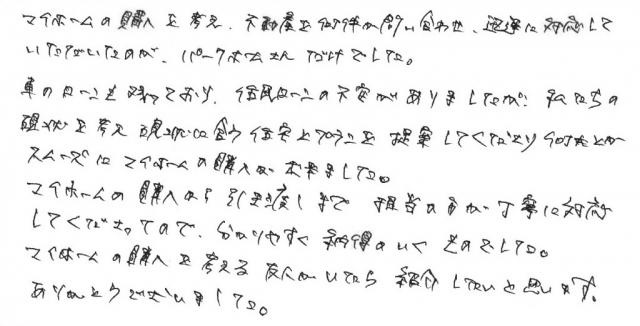 マイホームの購入を考え、不動産を何件か問い合わせ、迅速に対応して
いただいたのが、パークホームさんだけでした。
車のローンも残っており、住宅ローンの不安がありましたが、私たちの
現状を考え現状に合う住宅とプランを提案してくださり何とか
スムーズにマイホームの購入が出来ました。
マイホームの購入から引き渡しまで担当の方が丁寧に対応
してくださったので、分かりやすく納得のいくものでした。
マイホームの購入を考える友人がいたら紹介したいと思います。
ありがとうございました。